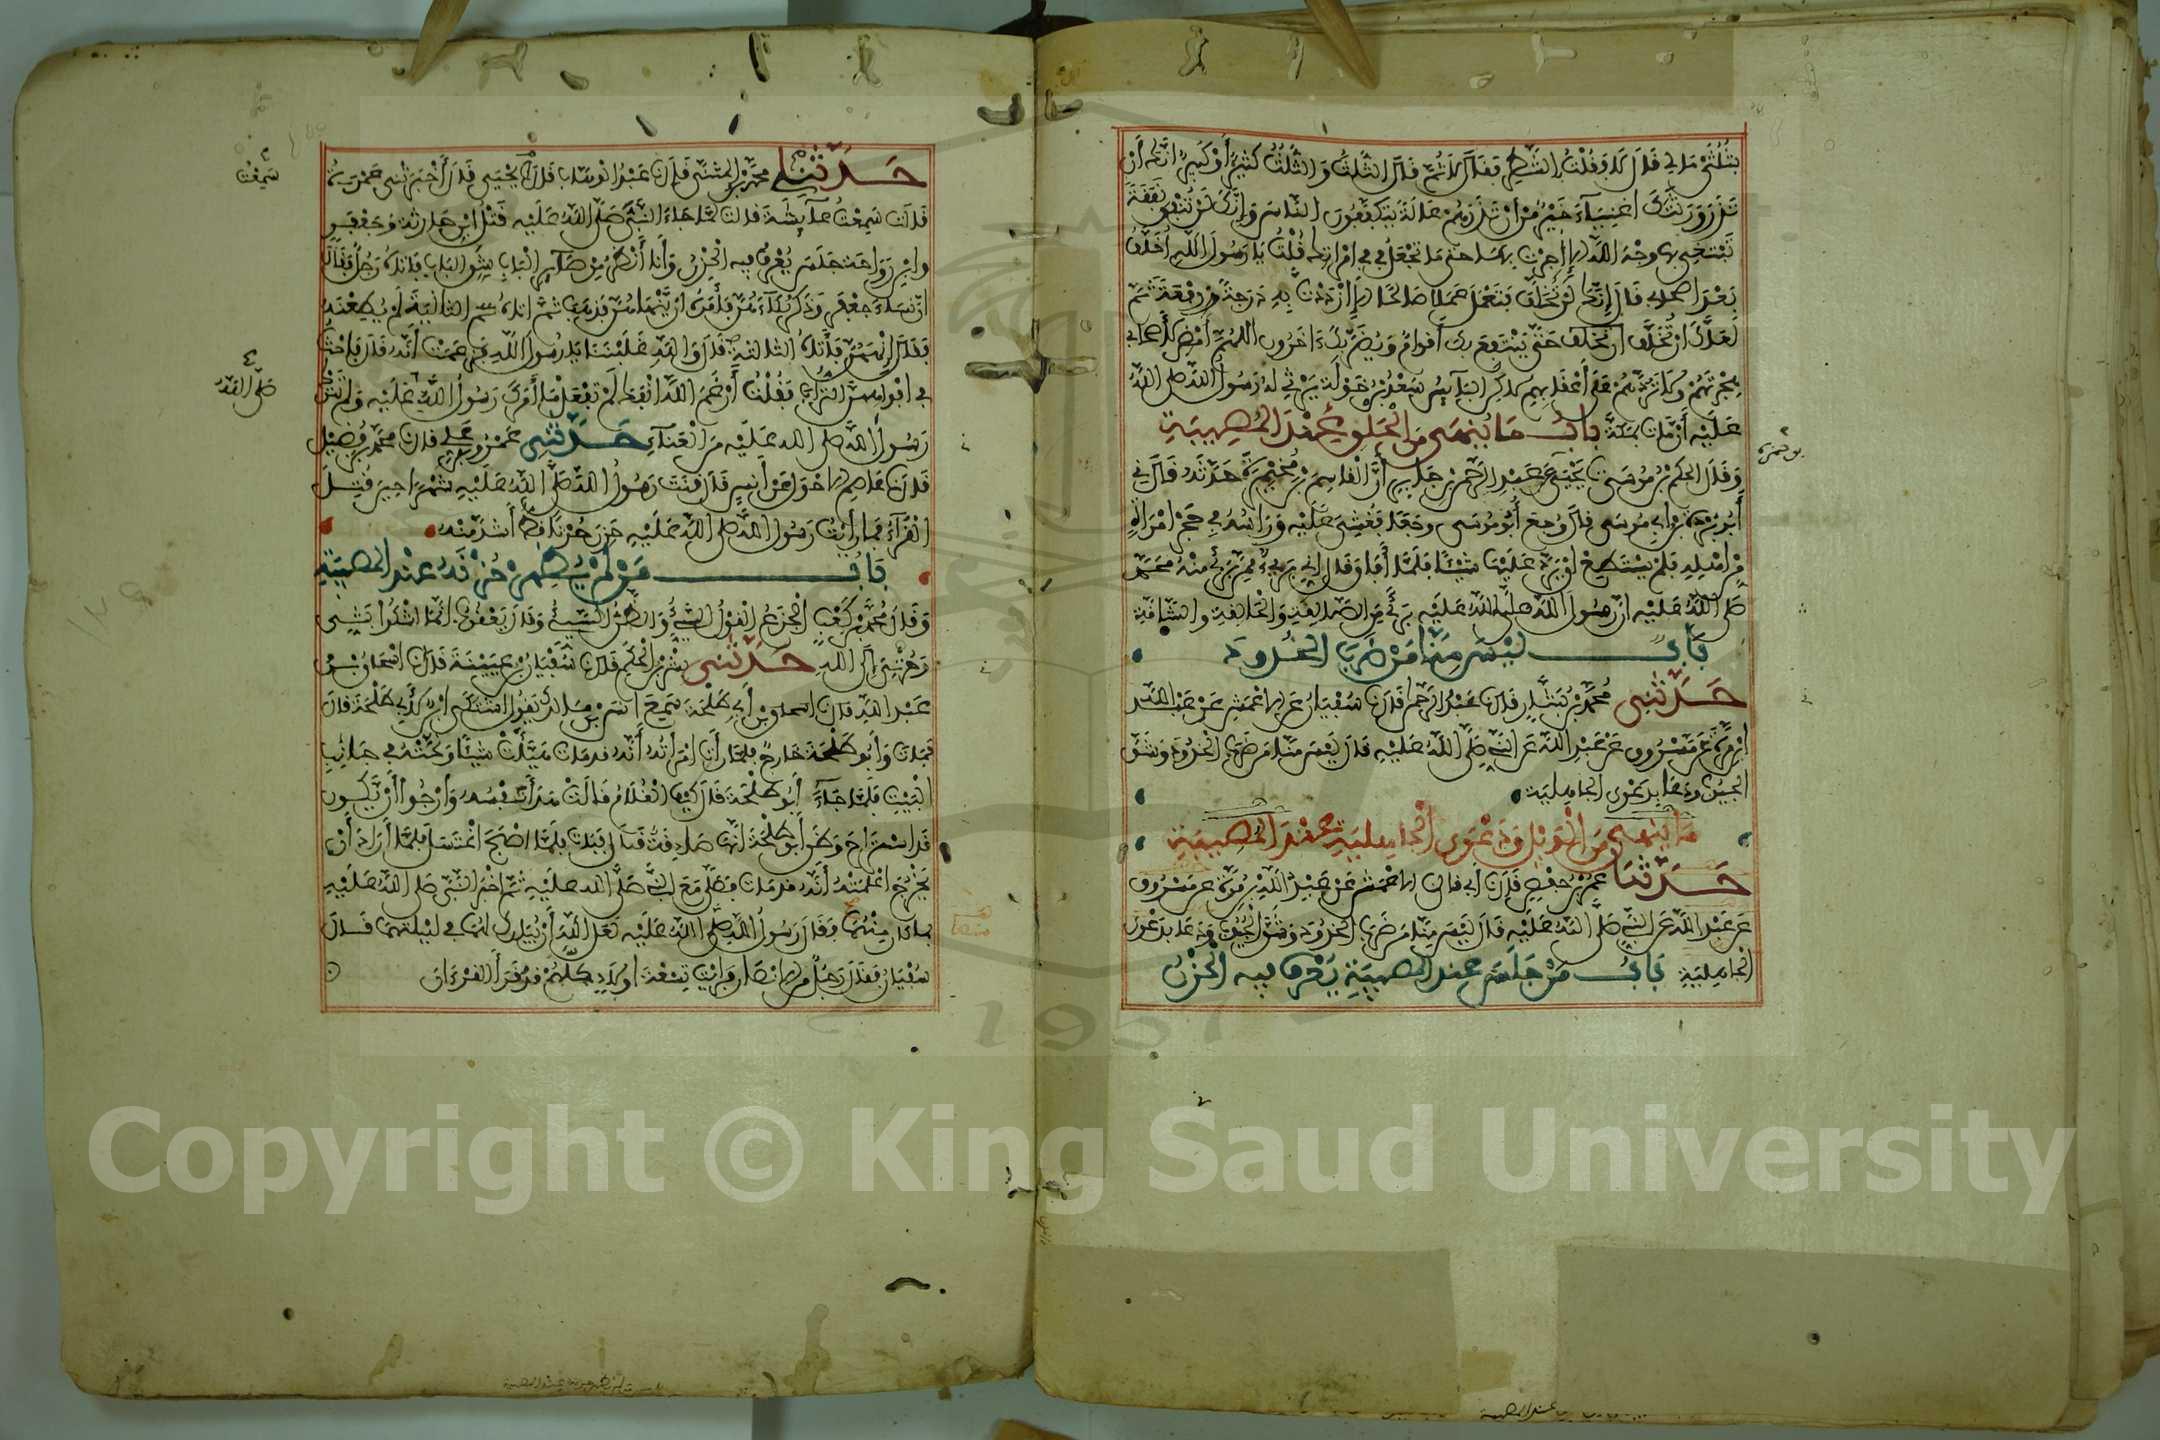 بثلثي مالي قال لا وفلت بالشطر فقال لا ثم قال الثلث والثلث كثير أو كبير انك أن
تذر ورثتك اغنياء خير من ان تذرهم عالة يتكففون الناس وإنك لن تنفق نفقة
تبتغي بها وجه الله الا اجرت بها حتى ما تجعل في في امراتك فلت يا رسول الله أخلف
بعد اصحابي قال إنك لن تخلف فتعمل عملا صالحا الا ازددت به درجة ورفعة ثم
لعلك ان تخلف حتى ينتفع بك أقوام ويضر بك ءاخرون اللهم أمض لأصحابي
هجرتهم ولا تردهم على أعقابهم لكن البائس سعد بن خولة يرثي له رسول الله صلى الله
عليه أن مات بمكة باب ما ينهى من الحلق عند المصيبة
وقال الحكم بن موسى نا يحيى عن عبد الرحمن بن جابر أن القاسم بن مخيمرة حدثه قال ني
أبو بردة بن أبي موسى قال وجع أبو موسى وجعا فغشي عليه وراسه في حجر امراة
من أهله فلم يستطع ان يرد عليها شيئا فلما أفاق قال إني بريء ممن برئ منه محمد
صلى الله عليه ان رسول الله صلى الله عليه برئ من الصالقة والحالقة والشاقة
باب ليس منا من ضرب الخدود
حدثني محمد بن بشار قال نا عبد الرحمن قال نا سفيان عن الاعمش عن عبد الله
ابن مرة عن مسروق عن عبد الله عن النبي صلى الله عليه قال ليس منا من ضرب الخدود وشق
الجيوب ودعا بدعوى الجاهلية
ما ينهى من الويل ودعوى الجاهلية عند المصيبة
حدثنا عمر بن حفص قال نا أبي قال نا الاعمش عن عبد الله بن مرة عن مسروق
عن عبد الله عن النبي صلى الله عليه قال ليس منا من ضرب الخدود وشق الجيوب ودعا بدعوى
الجاهلية باب من جلس عند المصيبة يعرف فيه الحزن
حدثنا محمد بن المثنى قال نا عبد الوهاب قال نا يحيى قال أخبرتني عمرة
قالت سمعت عائشة قالت لما جاء النبي صلى الله عليه قتل ابن حارثة وجعفر
وابن رواحة جلس يعرف فيه الحزن وأنا أنظر من صائر الباب شق الباب فاتاه رجل فقال
ان نساء جعفر وذكر بكاءهن فأمره ان ينهاهن فذهب ثم اتاه الثانية لم يطعنه
فقال انههن فأتاه الثالثة قال والله غلبننا يا رسول الله فزعمت أنه قال فاحث
في افواههن التراب فقلت أرغم الله انفك لم تفعل ما أمرك رسول الله صلى الله عليه ولم تترك
رسول الله صلى الله عليه من العناء حدثني عمرو بن علي قال نا محمد بن فضيل
قال نا عاصم الاحول عن أنس قال قنت رسول الله صلى الله عليه شهرا حين قتل
القراء فما رأيت رسول الله صلى الله عليه حزن حزنا قط أشد منه
باب من لم يظهر حزنه عند المصيبة
وقال محمد بن كعب الجزع القول السيئ والظن السيئ وقال يعقوب إنما اشكو بثي
وحزني إلى الله حدثني بشر بن الحكم قال نا سفيان بن عيينة قال نا اسحاق بن
عبد الله قال نا اسحاق بن أبي طلحة سمع انس بن مالك يقول اشتكى ابن لأبي طلحة قال
فمات وأبو طلحة خارج فلما رأت امرأته أنه قد مات هيأت شيئا ونحته في جانب
البيت فلما جاء أبو طلحة قال كيف الغلام قالت هدأت نفسه وأرجوا أن يكون
قد استراح وظن أبو طلحة انها صادقة قال فبات فلما اصبح اغتسل فلما أراد أن
يخرج اعلمته أنه قد مات فصلى مع النبي صلى الله عليه ثم اخبر النبي صلى الله عليه
بما كان منهما فقال رسول الله صلى الله عليه لعل الله أن يبارك لهما في ليلتهما قال
سفيان فقال رجل من الانصار فرايت تسعة اولاد كلهم قد قرأ القرءان
سمعت
صلى الله
Copyright © King Saud University
1957